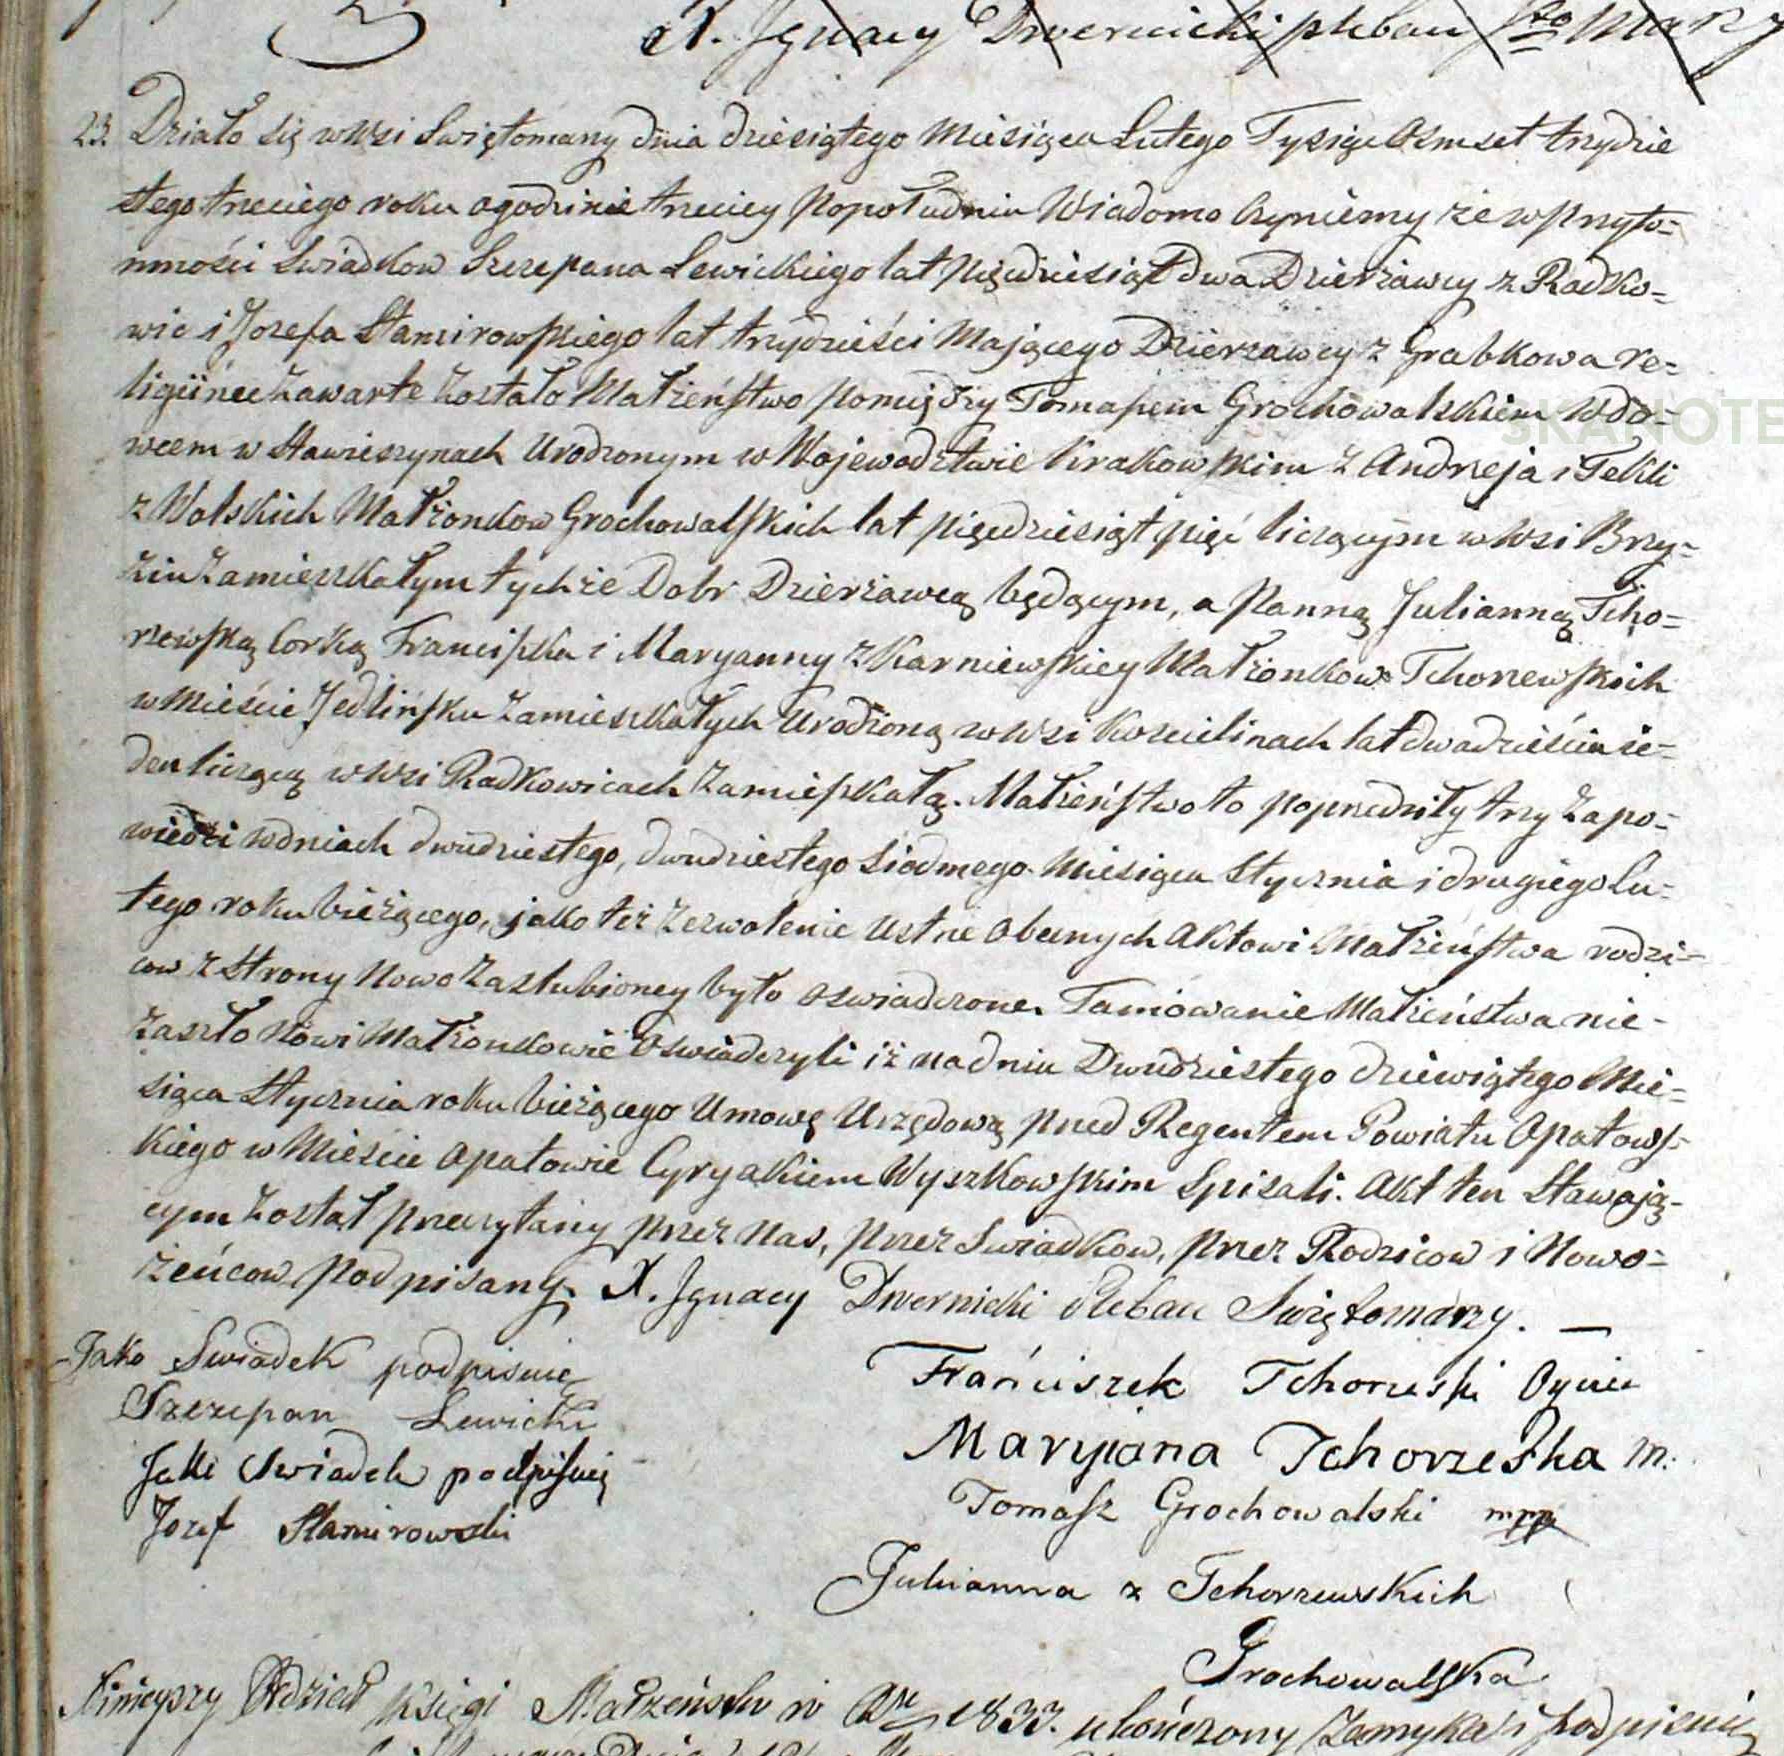 X. Ignacy Dwernicki pleban Sto Marz
23. Działo się w Wsi Swiętomarzy dnia dziesiątego Miesiąca Lutego Tysiąc Osmset trzydzie
stego trzeciego roku o godzinie trzeciey po południu Wiadomo Czyniemy że w przyto=
mności Swiadkow Szczepana Lewickiego lat pięćdziesiąt dwa Dzierżawcy z Radko=
wic i Jozefa Stamirowskiego lat trzydzieści Mającego Dzierżawcy z Grabkowa re=
ligiine Zawarte Zostało Małżeństwo pomiędzy Tomaszem Grochowalskiem Wdo=
wcem w Stawieszynach Urodzonym w Wojewodztwie Krakowskim z Andrzeja i Tekli
z Wolskich Małżonkow Grochowalskich lat pięćdziesiąt pięć liczącym w Wsi Brzy=
zin Zamieszkałym tychże Dobr Dzierżawcą będącym, a Panną Julianną Tcho=
rzewską Corką Franciszka i Maryanny z Karniewskiey Małżonkow Tchorzewskich
w Mieście Jedlińsku Zamieszkałych Urodzoną w Wsi Koscielinach lat dwadzieścia ie=
den liczącą w Wsi Radkowicach Zamieszkałą. Małżeństwo to poprzedziły trzy Zapo=
wiedzi w dniach dwudziestego, dwudziestego siodmego Miesiąca Stycznia i drugiego Lu=
tego roku bieżącego, jako też Zezwolenie Ustne Obecnych Aktowi Małżeństwa rodzi=
cow z Strony Nowo Zaslubioney było oswiadczone. Tamowanie Małżeństwa nie=
zaszło Nowi Małżonkowie Oswiadczyli iż na dniu Dwudziestego dziewiątego Mie=
siąca Stycznia roku bieżącego Umowę Urzędową przed Regentem Powiatu Opatows=
kiego w Mieście Opatowie Cyryakiem Wyszkowskim Spisali. Akt ten Stawają=
cym Został przeczytany przez Nas, przez Swiadkow, przez Rodzicow i Nowo=
żeńcow podpisany. X. Ignacy Dwernicki Pleban Swiętomarzy.
Jako Swiadek podpisuię
Szczepan Lewicki
Jako Swiadek podpisuię
Jozef Stamirowski
Franciszek Tchorzeski Oyciec
Maryiana Tchorzeska M.
Tomasz Grochowalski mpp
Julianna z Tchorzewskich
Grochowalska
Ninieyszy Oddział Księgi Małżeństw w 1833. ukończony Zamyka i podpisuię
SKANOTE